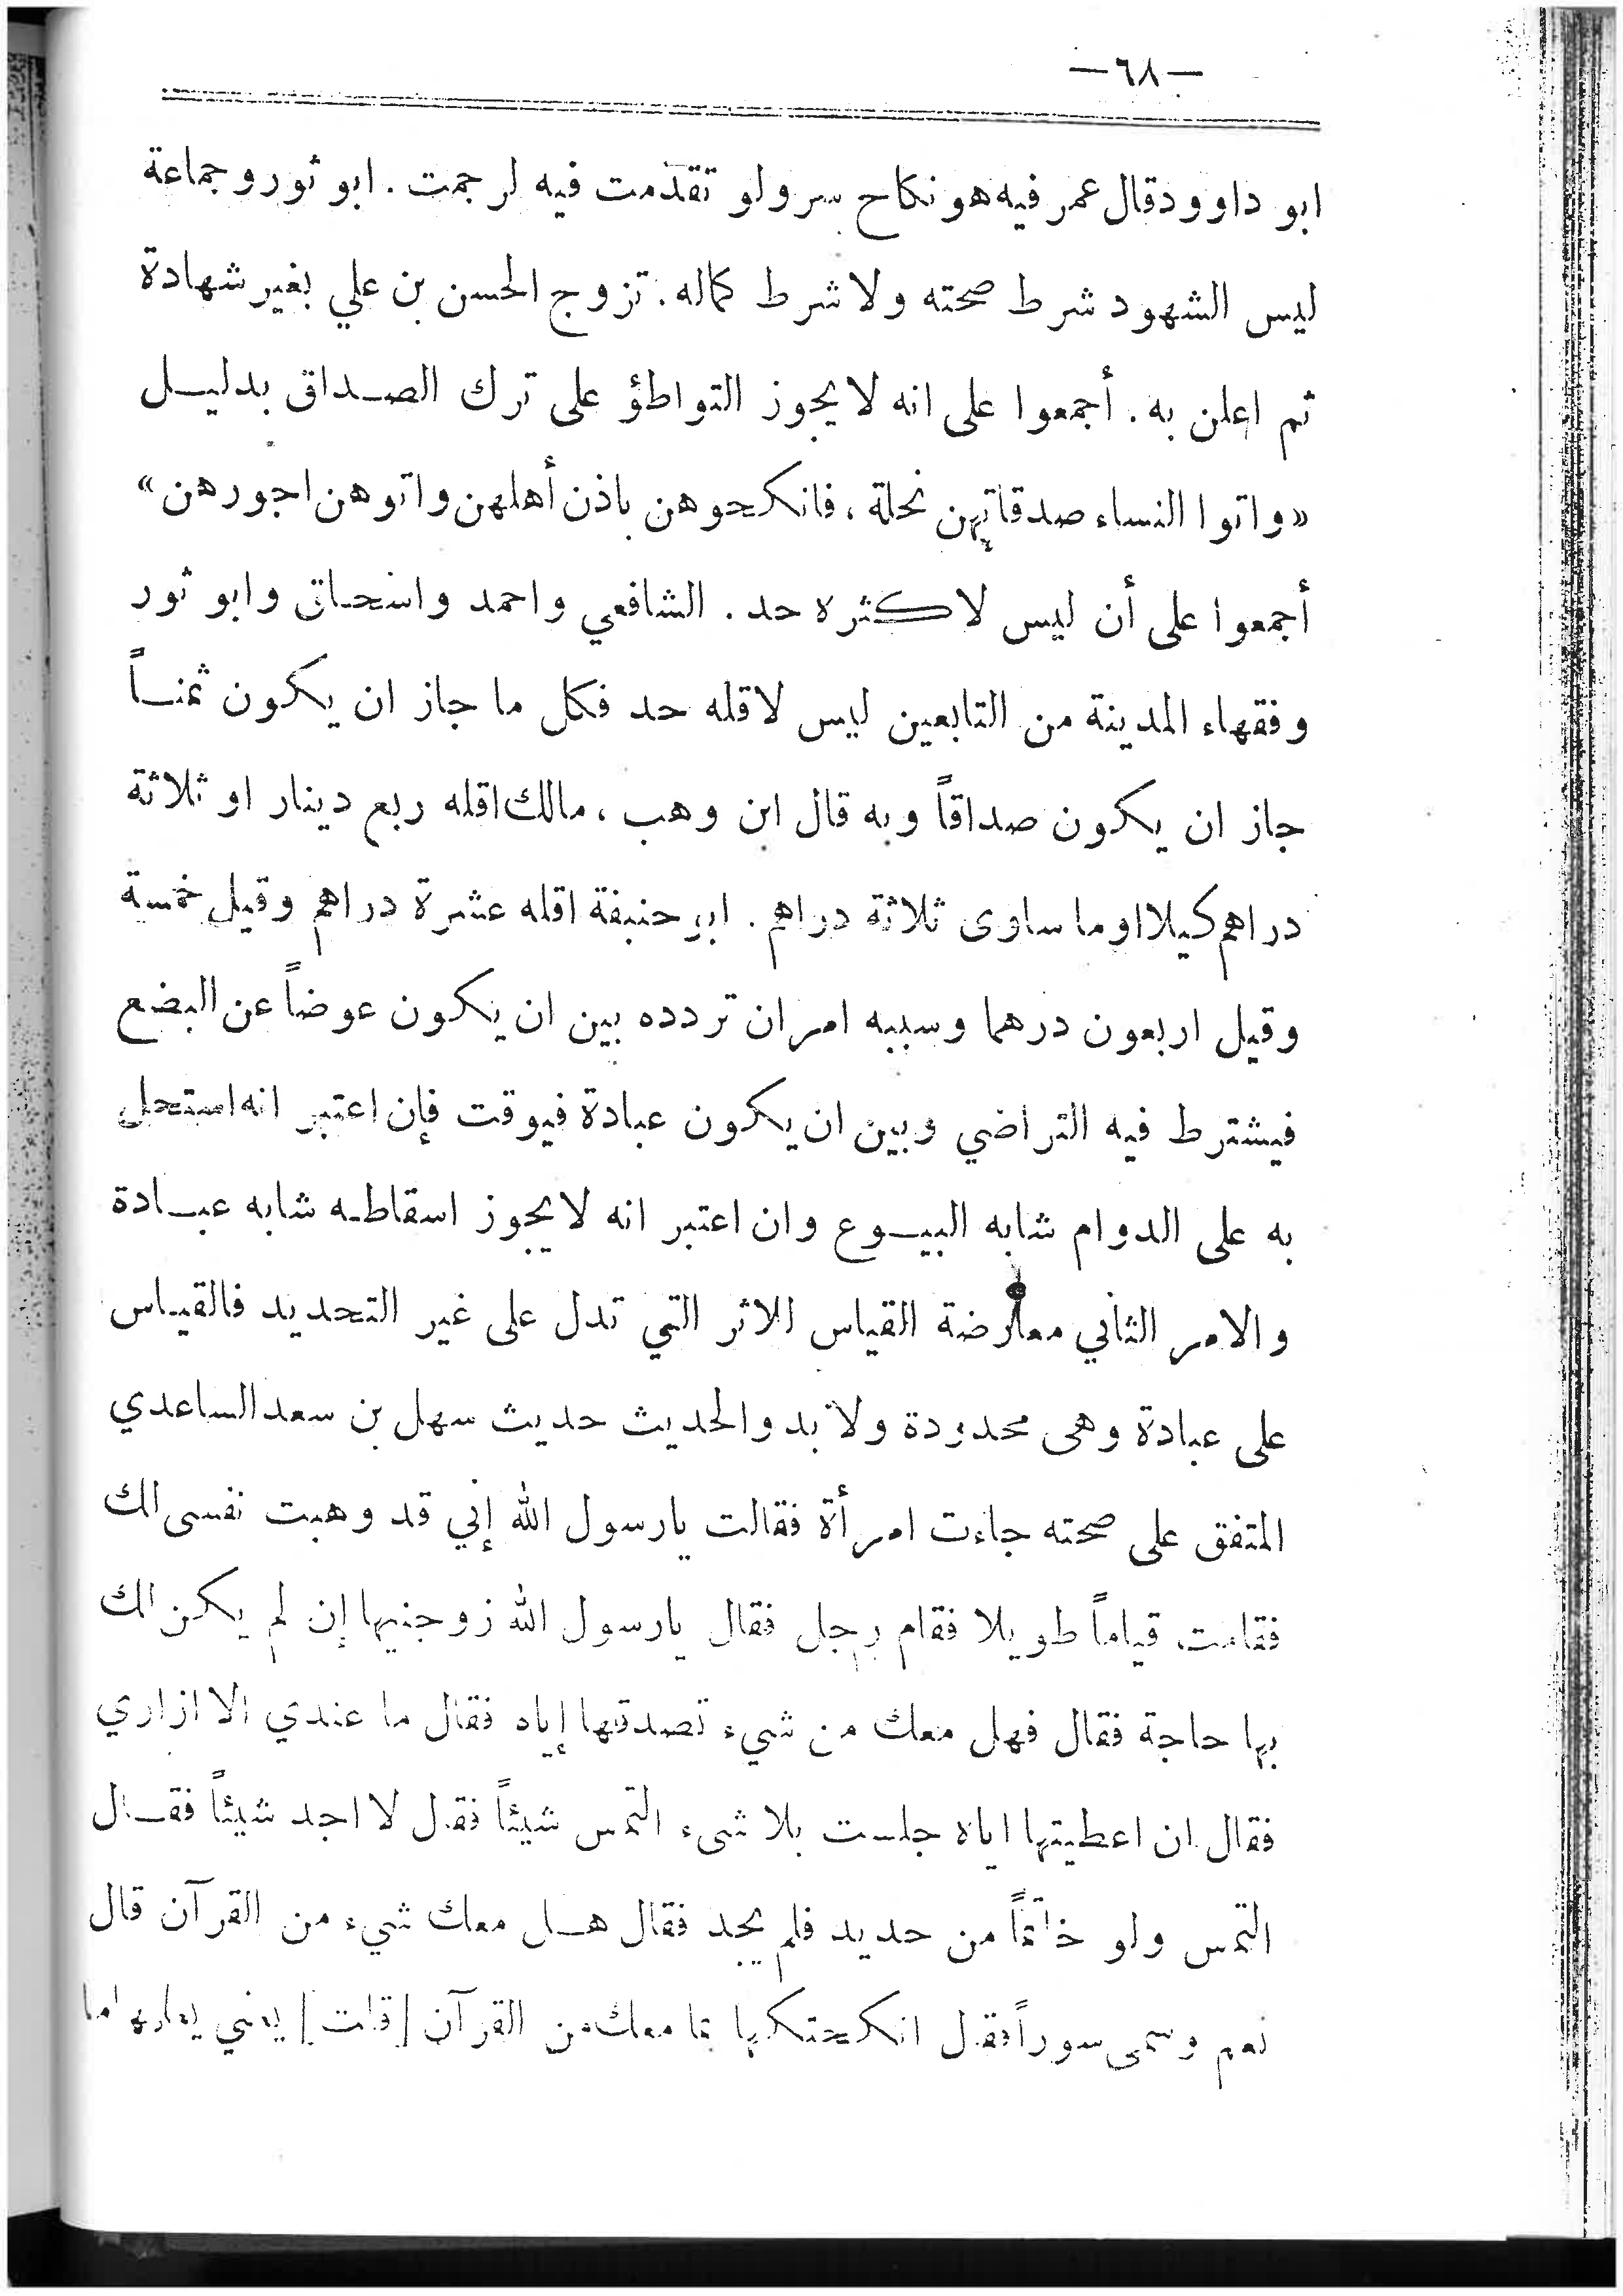 —٦٨—
ابو داوود قال عمر فيه هو نكاح سر ولو تقدمت فيه لرجمت . ابو ثور وجماعة
ليس الشهود شرط صحته ولا شرط كماله . تزوج الحسن بن علي بغير شهادة
ثم اعلن به . أجمعوا على انه لا يجوز التواطؤ على ترك الصداق بدليل
«واتوا النساء صدقاتهن نحلة ، فانكحوهن باذن أهلهن واتوهن اجورهن»
أجمعوا على أن ليس لاكثره حد . الشافعي واحمد واسحاق وابو ثور
وفقهاء المدينة من التابعين ليس لاقله حد فكل ما جاز ان يكون ثمناً
جاز ان يكون صداقاً وبه قال ابن وهب ، مالك اقله ربع دينار او ثلاثة
دراهم كيلا او ما ساوى ثلاثة دراهم . ابو حنيفة اقله عشرة دراهم وقيل خمسة
وقيل اربعون درهما وسببه امران تردده بين ان يكون عوضاً عن البضع
فيشترط فيه التراضي وبين ان يكون عبادة فيوقت فإن اعتبر انه استحل
به على الدوام شابه البيوع وان اعتبر انه لا يجوز اسقاطه شابه عبادة
والامر الثاني معارضة القياس للاثر التي تدل على غير التحديد فالقياس
على عبادة وهى محدودة ولا بد والحديث حديث سهل بن سعد الساعدي
المتفق على صحته جاءت امرأة فقالت يارسول الله إني قد وهبت نفسى لك
فقامت قياماً طويلا فقام رجل فقال يارسول الله زوجنيها إن لم يكن لك
بها حاجة فقال فهل معك من شيء تصدقها إياه فقال ما عندي الا ازاري
فقال ان اعطيتها اياه جلست بلا شىء التمس شيئاً فقال لا اجد شيئاً فقال
التمس ولو خاتماً من حديد فلم يجد فقال هل معك شيء من القرآن قال
نعم وسمى سوراً فقال انكحتكها بما معك من القرآن [قلت] يعني يعلمها ما